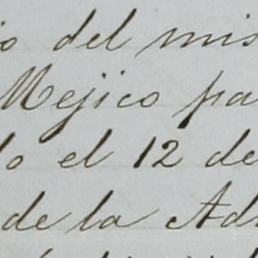 o del mis
Mejico pa
do el 12 de
de la Ad